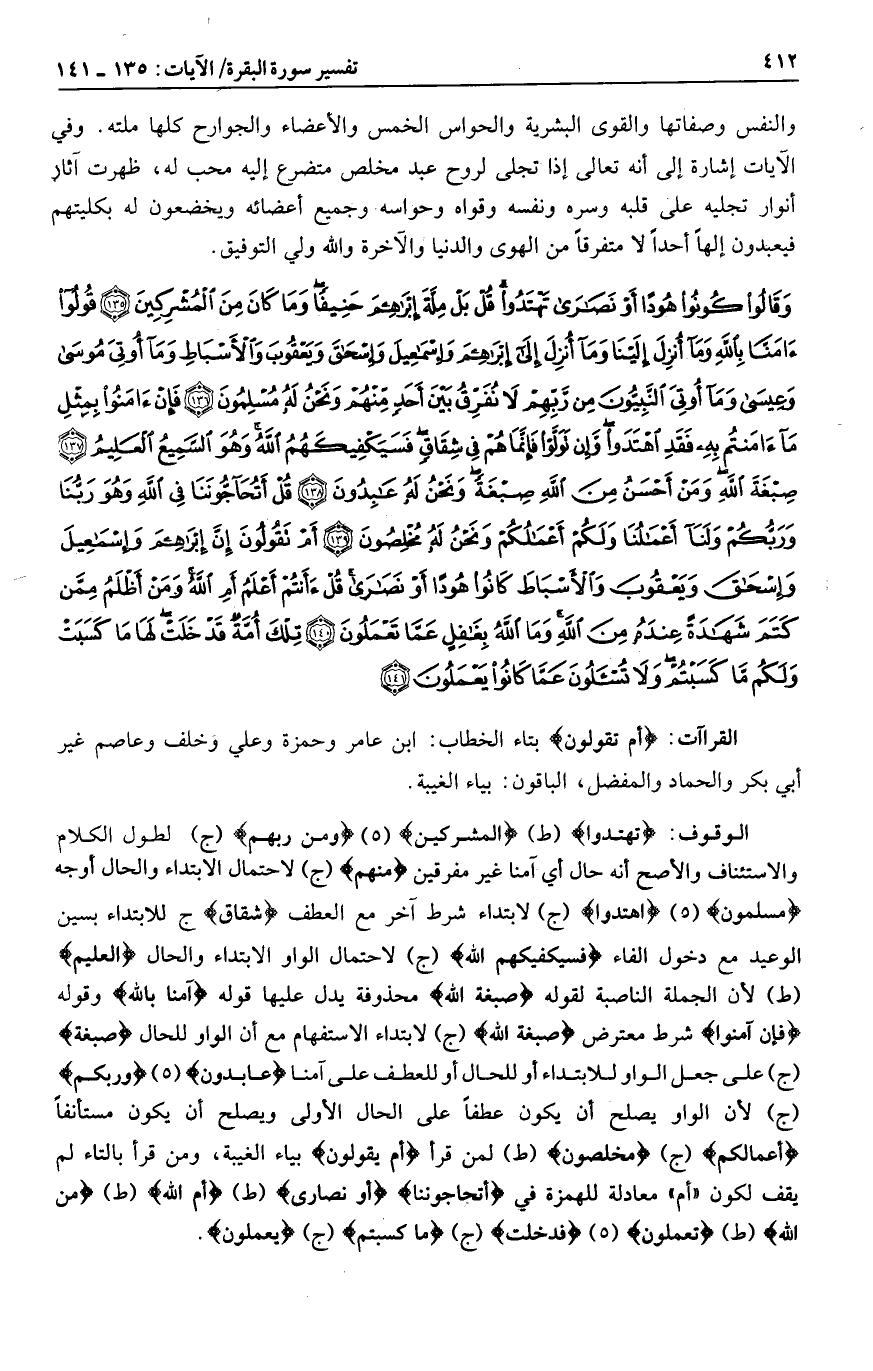 ٤١٢
تفسير سورة البقرة/ الآيات: ١٣٥ ـ ١٤١
والنفس وصفاتها والقوى البشرية والحواس الخمس والأعضاء والجوارح كلها ملته. وفي
الآيات إشارة إلى أنه تعالى إذا تجلى لروح عبد مخلص متضرع إليه محب له، ظهرت آثار
أنوار تجليه على قلبه وسره ونفسه وقواه وحواسه وجميع أعضائه ويخضعون له بكليتهم
فيعبدون إلهاً أحداً لا متفرقاً من الهوى والدنيا والآخرة والله ولي التوفيق.
وَقَالُوا۟ كُونُوا۟ هُودًا أَوْ نَصَٰرَىٰ تَهْتَدُوا۟ ۗ قُلْ بَلْ مِلَّةَ إِبْرَٰهِـۧمَ حَنِيفًا ۖ وَمَا كَانَ مِنَ ٱلْمُشْرِكِينَ ﴿١٣٥﴾ قُولُوٓا۟
ءَامَنَّا بِٱللَّهِ وَمَآ أُنزِلَ إِلَيْنَا وَمَآ أُنزِلَ إِلَىٰٓ إِبْرَٰهِـۧمَ وَإِسْمَٰعِيلَ وَإِسْحَٰقَ وَيَعْقُوبَ وَٱلْأَسْبَاطِ وَمَآ أُوتِىَ مُوسَىٰ
وَعِيسَىٰ وَمَآ أُوتِىَ ٱلنَّبِيُّونَ مِن رَّبِّهِمْ لَا نُفَرِّقُ بَيْنَ أَحَدٍ مِّنْهُمْ وَنَحْنُ لَهُۥ مُسْلِمُونَ ﴿١٣٦﴾ فَإِنْ ءَامَنُوا۟ بِمِثْلِ
مَآ ءَامَنتُم بِهِۦ فَقَدِ ٱهْتَدَوا۟ ۖ وَّإِن تَوَلَّوْا۟ فَإِنَّمَا هُمْ فِى شِقَاقٍ ۖ فَسَيَكْفِيكَهُمُ ٱللَّهُ ۚ وَهُوَ ٱلسَّمِيعُ ٱلْعَلِيمُ ﴿١٣٧﴾
صِبْغَةَ ٱللَّهِ ۖ وَمَنْ أَحْسَنُ مِنَ ٱللَّهِ صِبْغَةً ۖ وَنَحْنُ لَهُۥ عَٰبِدُونَ ﴿١٣٨﴾ قُلْ أَتُحَآجُّونَنَا فِى ٱللَّهِ وَهُوَ رَبُّنَا
وَرَبُّكُمْ وَلَنَآ أَعْمَٰلُنَا وَلَكُمْ أَعْمَٰلُكُمْ وَنَحْنُ لَهُۥ مُخْلِصُونَ ﴿١٣٩﴾ أَمْ نَقُولُونَ إِنَّ إِبْرَٰهِـۧمَ وَإِسْمَٰعِيلَ
وَإِسْحَٰقَ وَيَعْقُوبَ وَٱلْأَسْبَاطَ كَانُوا۟ هُودًا أَوْ نَصَٰرَىٰ ۗ قُلْ ءَأَنتُمْ أَعْلَمُ أَمِ ٱللَّهُ ۗ وَمَنْ أَظْلَمُ مِمَّن
كَتَمَ شَهَٰدَةً عِندَهُۥ مِنَ ٱللَّهِ ۗ وَمَا ٱللَّهُ بِغَٰفِلٍ عَمَّا تَعْمَلُونَ ﴿١٤٠﴾ تِلْكَ أُمَّةٌ قَدْ خَلَتْ ۖ لَهَا مَا كَسَبَتْ
وَلَكُم مَّا كَسَبْتُمْ ۖ وَلَا تُسْـَٔلُونَ عَمَّا كَانُوا۟ يَعْمَلُونَ ﴿١٤١﴾
القراآت: ﴿أم تقولون﴾ بتاء الخطاب: ابن عامر وحمزة وعلي وخلف وعاصم غير
أبي بكر والحماد والمفضل، الباقون: بياء الغيبة.
الوقوف: ﴿تهتدوا﴾ (ط) ﴿المشركين﴾ (٥) ﴿ومن ربهم﴾ (ج) لطول الكلام
والاستئناف والأصح أنه حال أي آمنا غير مفرقين ﴿منهم﴾ (ج) لاحتمال الابتداء والحال أوجه
﴿مسلمون﴾ (٥) ﴿اهتدوا﴾ (ج) لابتداء شرط آخر مع العطف ﴿شقاق﴾ ج للابتداء بسين
الوعيد مع دخول الفاء ﴿فسيكفيكهم الله﴾ (ج) لاحتمال الواو الابتداء والحال ﴿العليم﴾
(ط) لأن الجملة الناصبة لقوله ﴿صبغة الله﴾ محذوفة يدل عليها قوله ﴿آمنا بالله﴾ وقوله
﴿فإن آمنوا﴾ شرط معترض ﴿صبغة الله﴾ (ج) لابتداء الاستفهام مع أن الواو للحال ﴿صبغة﴾
(ج) على جعل الواو للابتداء أو للحال أو للعطف على آمنا ﴿عابدون﴾ (٥) ﴿وربكم﴾
(ج) لأن الواو يصلح أن يكون عطفاً على الحال الأولى ويصلح أن يكون مستأنفاً
﴿أعمالكم﴾ (ج) ﴿مخلصون﴾ (ط) لمن قرأ ﴿أم يقولون﴾ بياء الغيبة، ومن قرأ بالتاء لم
يقف لكون «أم» معادلة للهمزة في ﴿أتحاجوننا﴾ ﴿أو نصارى﴾ (ط) ﴿أم الله﴾ (ط) ﴿من
الله﴾ (ط) ﴿تعملون﴾ (٥) ﴿قدخلت﴾ (ج) ﴿ما كسبتم﴾ (ج) ﴿يعملون﴾.